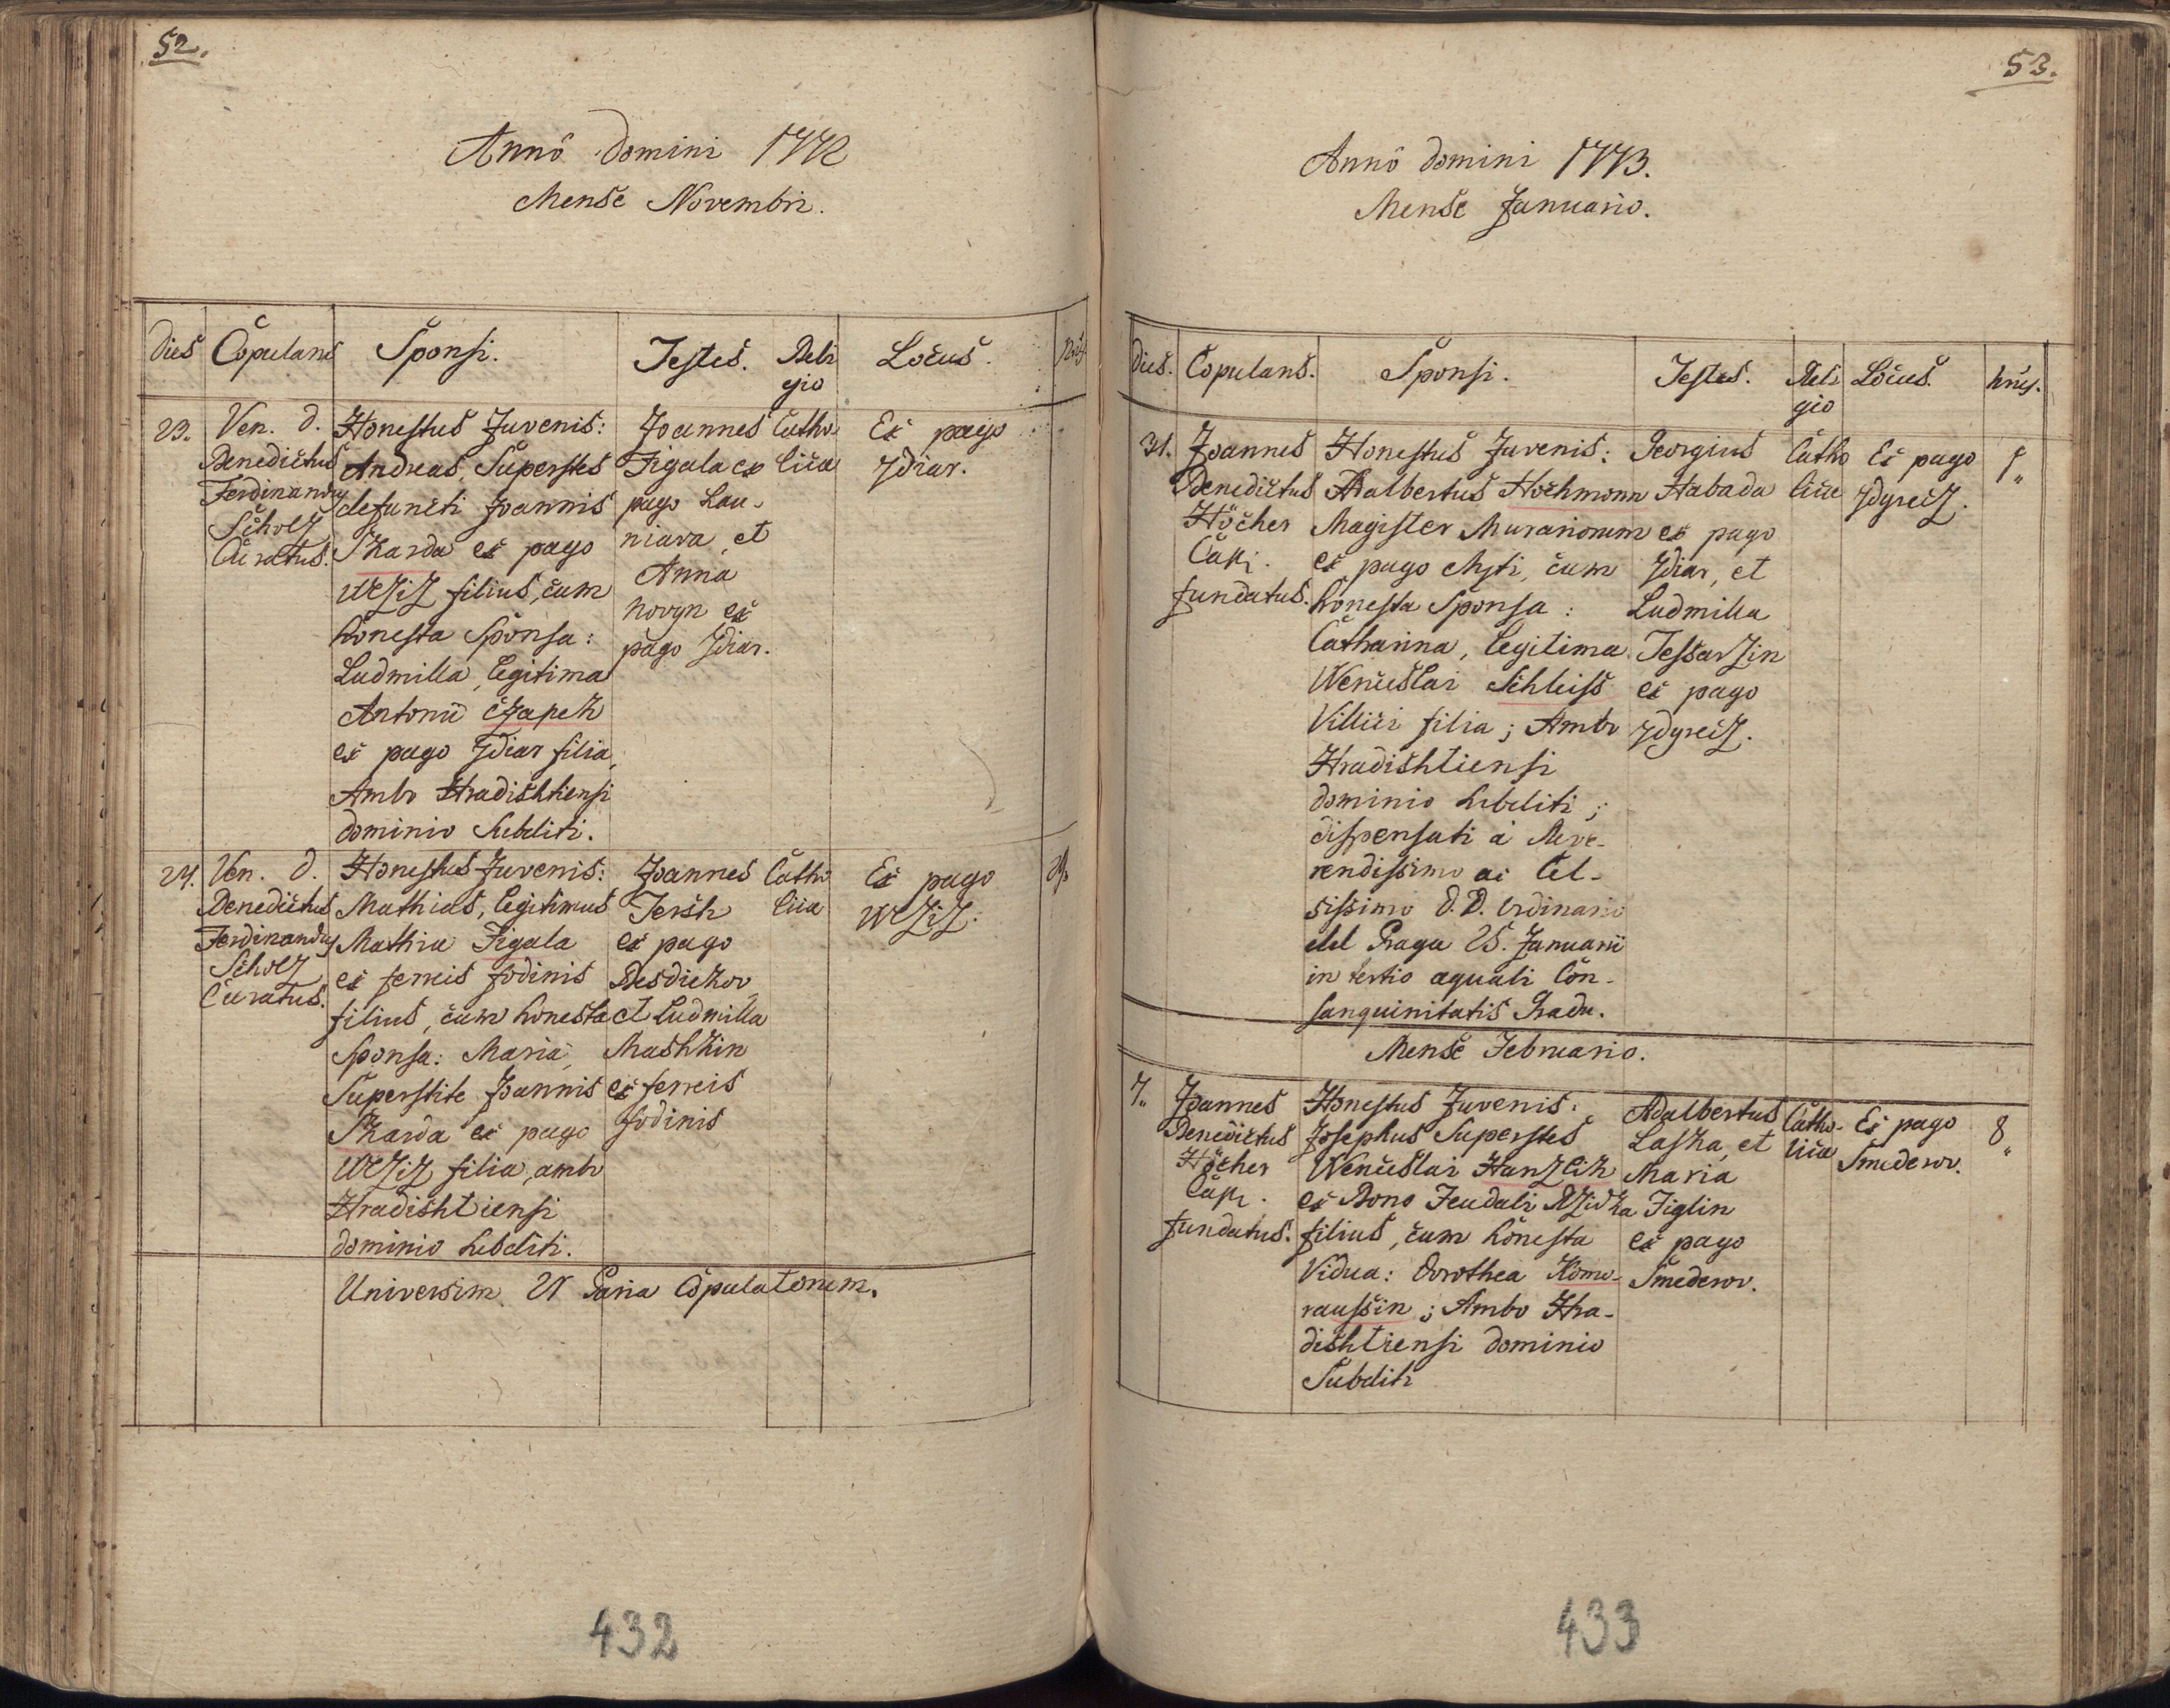 52.
Anno Domini 1772
Mense Novembri.
Dies Copulans Sponsi. Testes. Reli
gio Locus.
23. Ven. D.
Benedictus
Ferdinandus
Scholz
Curatus.
Honestus Juvenis:
Andreas, Superstes
defuncti Joannis
Skarda ex pago
WeZiZ filius, cum
honesta Sponsa:
Ludmilla, legitima
Antonii Czapek
ex pago Zdiar filia,
Ambo Hradishtiensi
dominio Subditi.
Joannes
Figala ex
pago Lau-
niava, et
Anna
Novyn ex
pago Zdiar.
Catho
lica
Ex pago
Zdiar.
24. Ven. D.
Benedictus
Ferdinandus
Scholz
Curatus.
Honestus Juvenis:
Mathias, legitimus
Mathia Figala
ex ferreis fodinis
filius, cum honesta
Sponsa: Maria,
Superstite Joannis
Skarda ex pago
WeZiZ filia, ambo
Hradishtiensi
dominio subditi.
Joannes
Jersh
ex pago
Besdiekov
et Ludmilla
Mashkin
ex ferreis
fodinis
Catho
lica
Ex pago
WeZiZ.
Universim 21 Paria Copulatorum.
432
53.
Anno Domini 1773.
Mense Januario.
Dies. Copulans. Sponsi. Testes. Reli
gio Locus.
31. Joannes
Benedictus
Höcher
Cap.
fundatus.
Honestus Juvenis:
Adalbertus Hochmonn
Magister Murariorum
ex pago Augsti, cum
honesta Sponsa:
Catharina, legitima
Wenceslai Schleiss
Villici filia; Ambo
Hradishtiensi
dominio subditi;
dispensati à Reve-
rendissimo ac Cel-
sissimo D. D. Ordinario
dd Praga 25. Januarii
in tertio aquali Con-
sanguinitatis Gradu.
Georgius
Habada
ex pago
Zdiar, et
Ludmilla
TessarZin
ex pago
ZdyreiZ.
Catho
lica
Ex pago
ZdyreiZ.
1
Mense Februario.
7. Joannes
Benedictus
Höcher
Cap.
fundatus.
Honestus Juvenis:
Josephus Superstes
Wenceslai HanZlik
ex Bono Feudali RZidka
filius, cum honesta
Vidua: Dorothea Komo-
raussin; Ambo Hra-
dishtiensi dominio
Subditi
Adalbertus
Laska, et
Maria
Figlin
ex pago
Smederov.
Catho-
lica
Ex pago
Smederov.
8
433